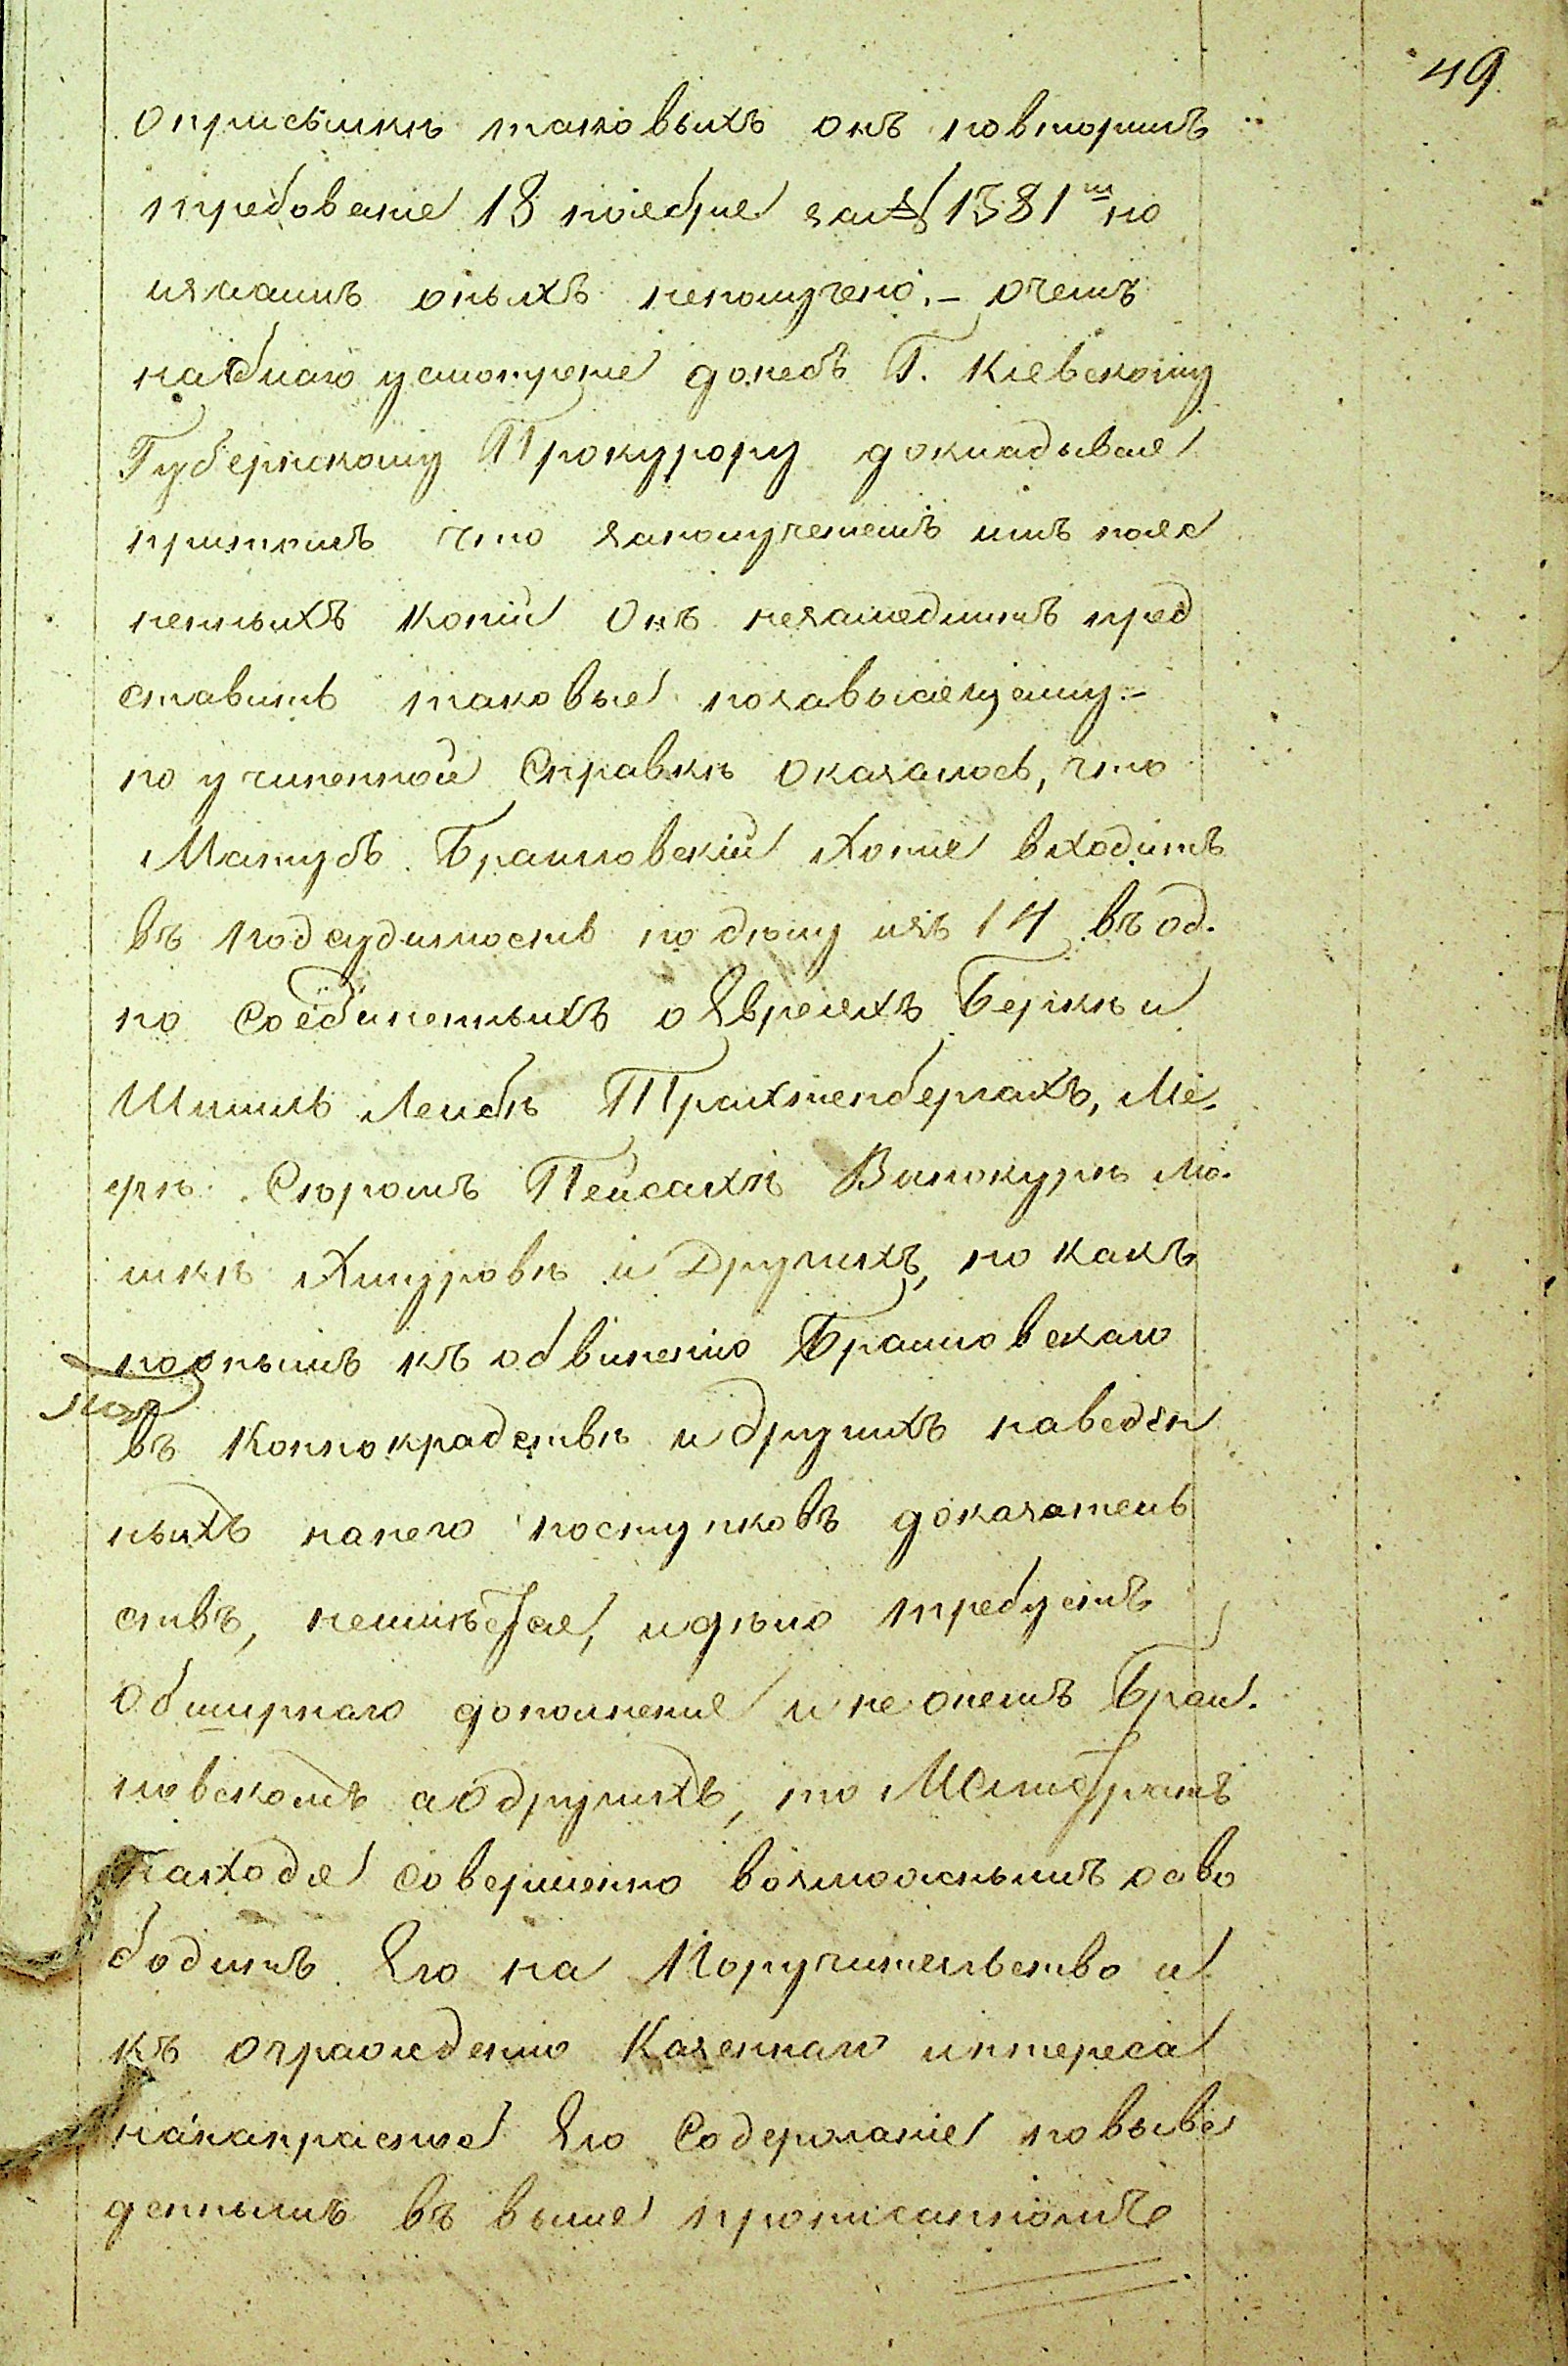 49
о присылкѣ таковыхъ онъ повторилъ
требованіе 18 ноября за № 1381м но
и затѣмъ оныхъ неполучено. – О чемъ
на благоусмотреніе донесъ Г. Кіевскому
Губернскому Прокурору докладывая
притомъ что заполученіемъ имъ пояс
ненныхъ копій Онъ незамедлитъ пред
ставить таковыя позависящему. –
по учиненной Справкѣ Оказалось, что
Матусъ Браиловскій Хотя входитъ
въ подсудимость по дѣлу изъ 14 въ од.
но соединенныхъ о Евреяхъ Беркѣ и
Шмиль Лейбѣ Трахтенбергахъ, Ме.
ерѣ Сюромъ Пейсахѣ Винокурѣ Мо.
шкѣ Хмуровѣ и Другихъ, но какъ
поонымъ къ обвиненію Браиловскаго
въ Коннокрадствѣ и другихъ наведен
ныхъ нанего поступковъ доказатель
ствъ, неимѣется, и дѣло требуетъ
Обширнаго дополненія и не онемъ Браи.
ловскомъ а о другихъ, то Магистратъ
Находя совершенно возможнымъ осво
бодить Его на Поручительство и
къ огражденію Казеннаго интереса
нанапрасное Его Содержаніе по выве
деннымъ въ выше прописанномъ